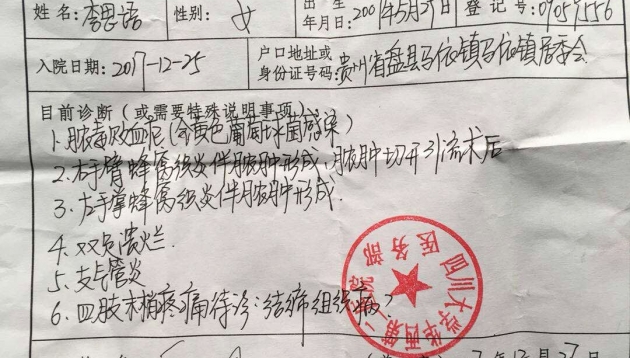 姓名: 李思语 性别: 女 出生年月日: 2001年5月29日 登记号: 09057556
入院日期: 2017-12-25 户口地址或身份证号码: 贵州省盘县马依镇马依镇居委会
目前诊断（或需要特殊说明事项）:
1. 脓毒败血症（金黄色葡萄球菌感染）
2. 右手臂蜂窝织炎伴脓肿形成, 脓肿切开引流术后
3. 左手掌蜂窝织炎伴脓肿形成.
4. 双足溃烂.
5. 支气管炎
6. 四肢末梢疼痛待诊: 结缔组织病?
四川大学华西第二 院医务部